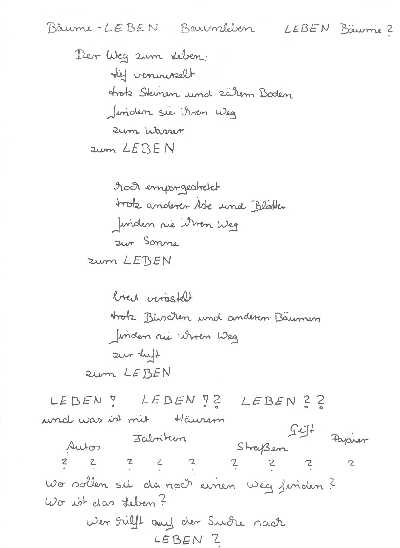 Bäume - LEBEN Baumleben LEBEN Bäume?
Der Weg zum Leben:
tief verwurzelt
trotz Steinen und zähem Boden
finden sie ihren Weg
zum Wasser
zum LEBEN
hoch emporgestreckt
trotz anderer Äste und Blätter
finden sie ihren Weg
zur Sonne
zum LEBEN
breit verästelt
trotz Büschen und anderen Bäumen
finden sie ihren Weg
zur Luft
zum LEBEN
LEBEN? LEBEN?? LEBEN??
und was ist mit Häusern
Autos Fabriken Straßen Gift Papier
? ? ? ? ? ? ? ? ?
Wo sollen sie da noch einen Weg finden?
Wo ist das Leben?
Wer hilft auf der Suche nach
LEBEN?